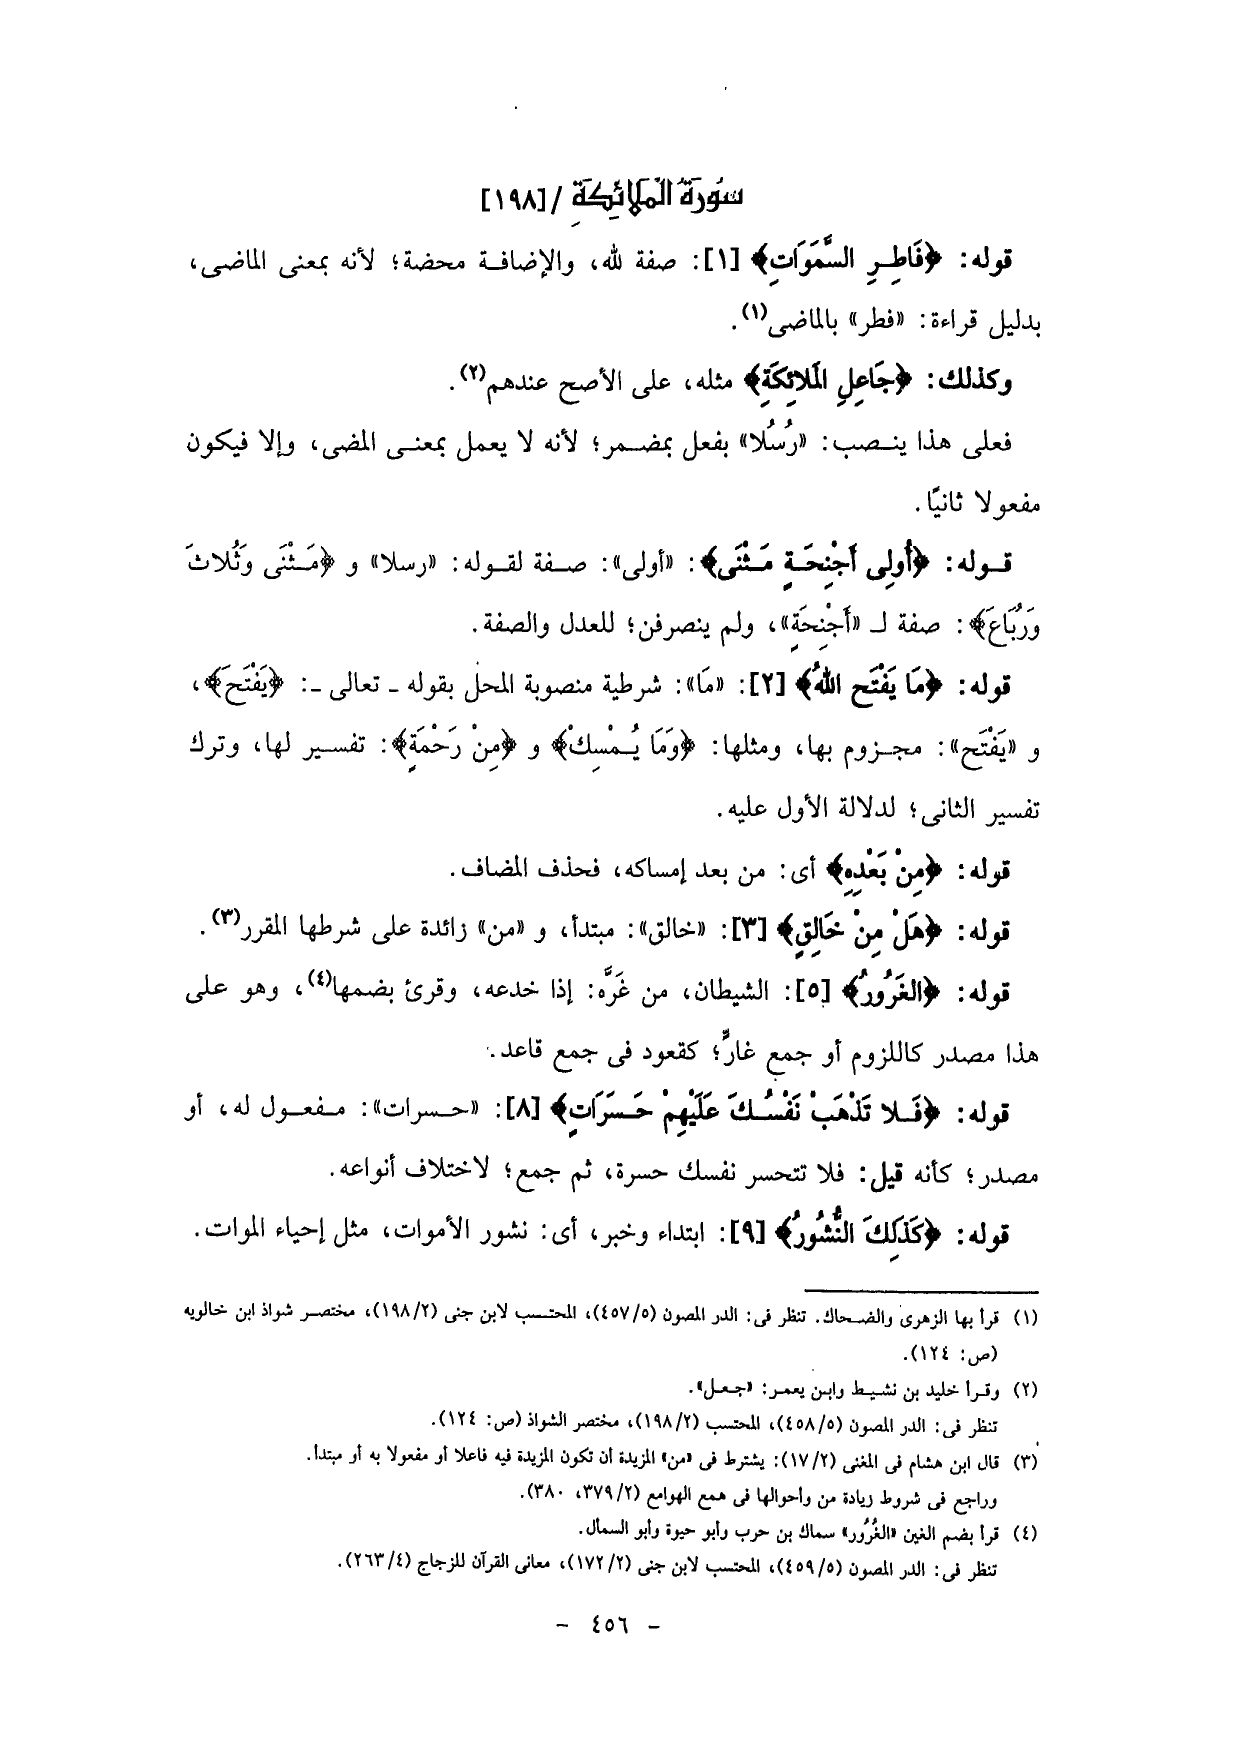 سُورَةُ الْمَلَائِكَةِ /[١٩٨]
قوله: ﴿فَاطِرِ السَّمَوَاتِ﴾ [١]: صفة لله، والإضافة محضة؛ لأنه بمعنى الماضى،
بدليل قراءة: «فطر» بالماضى(١).
وكذلك: ﴿جَاعِلِ الْمَلائِكَةِ﴾ مثله، على الأصح عندهم(٢).
فعلى هذا ينصب: «رُسُلا» بفعل بمضمر؛ لأنه لا يعمل بمعنى المضى، وإلا فيكون
مفعولا ثانيًا.
قوله: ﴿أُولِى أَجْنِحَةٍ مَثْنَى﴾: «أولى»: صفة لقوله: «رسلا» و ﴿مَثْنَى وَثُلاثَ
وَرُبَاعَ﴾: صفة لـ «أَجْنِحَةٍ»، ولم ينصرفن؛ للعدل والصفة.
قوله: ﴿مَا يَفْتَحِ اللَّهُ﴾ [٢]: «مَا»: شرطية منصوبة المحل بقوله ـ تعالى ـ: ﴿يَفْتَحَ﴾،
و «يَفْتَحِ»: مجزوم بها، ومثلها: ﴿وَمَا يُمْسِكْ﴾ و ﴿مِنْ رَحْمَةٍ﴾: تفسير لها، وترك
تفسير الثانى؛ لدلالة الأول عليه.
قوله: ﴿مِنْ بَعْدِهِ﴾ أى: من بعد إمساكه، فحذف المضاف.
قوله: ﴿هَلْ مِنْ خَالِقٍ﴾ [٣]: «خالق»: مبتدأ، و «من» زائدة على شرطها المقرر(٣).
قوله: ﴿الغَرُورُ﴾ [٥]: الشيطان، من غَرَّه: إذا خدعه، وقرئ بضمها(٤)، وهو على
هذا مصدر كاللزوم أو جمع غارٍّ؛ كقعود فى جمع قاعد.
قوله: ﴿فَلا تَذْهَبْ نَفْسُكَ عَلَيْهِمْ حَسَرَاتٍ﴾ [٨]: «حسرات»: مفعول له، أو
مصدر؛ كأنه قيل: فلا تتحسر نفسك حسرة، ثم جمع؛ لاختلاف أنواعه.
قوله: ﴿كَذَلِكَ النُّشُورُ﴾ [٩]: ابتداء وخبر، أى: نشور الأموات، مثل إحياء الموات.
(١) قرأ بها الزهرى والضحاك. تنظر فى: الدر المصون (٤٥٧/٥)، المحتسب لابن جنى (١٩٨/٢)، مختصر شواذ ابن خالويه
(ص: ١٢٤).
(٢) وقرأ خليد بن نشيط وابن يعمر: «جعل».
تنظر فى: الدر المصون (٤٥٨/٥)، المحتسب (١٩٨/٢)، مختصر الشواذ (ص: ١٢٤).
(٣) قال ابن هشام فى المغنى (١٧/٢): يشترط فى «من» المزيدة أن تكون المزيدة فيه فاعلا أو مفعولا به أو مبتدأ.
وراجع فى شروط زيادة من وأحوالها فى همع الهوامع (٣٧٩/٢، ٣٨٠).
(٤) قرأ بضم الغين «الغُرُور» سماك بن حرب وأبو حيوة وأبو السمال.
تنظر فى: الدر المصون (٤٥٩/٥)، المحتسب لابن جنى (١٧٢/٢)، معانى القرآن للزجاج (٢٦٣/٤).
- ٤٥٦ -